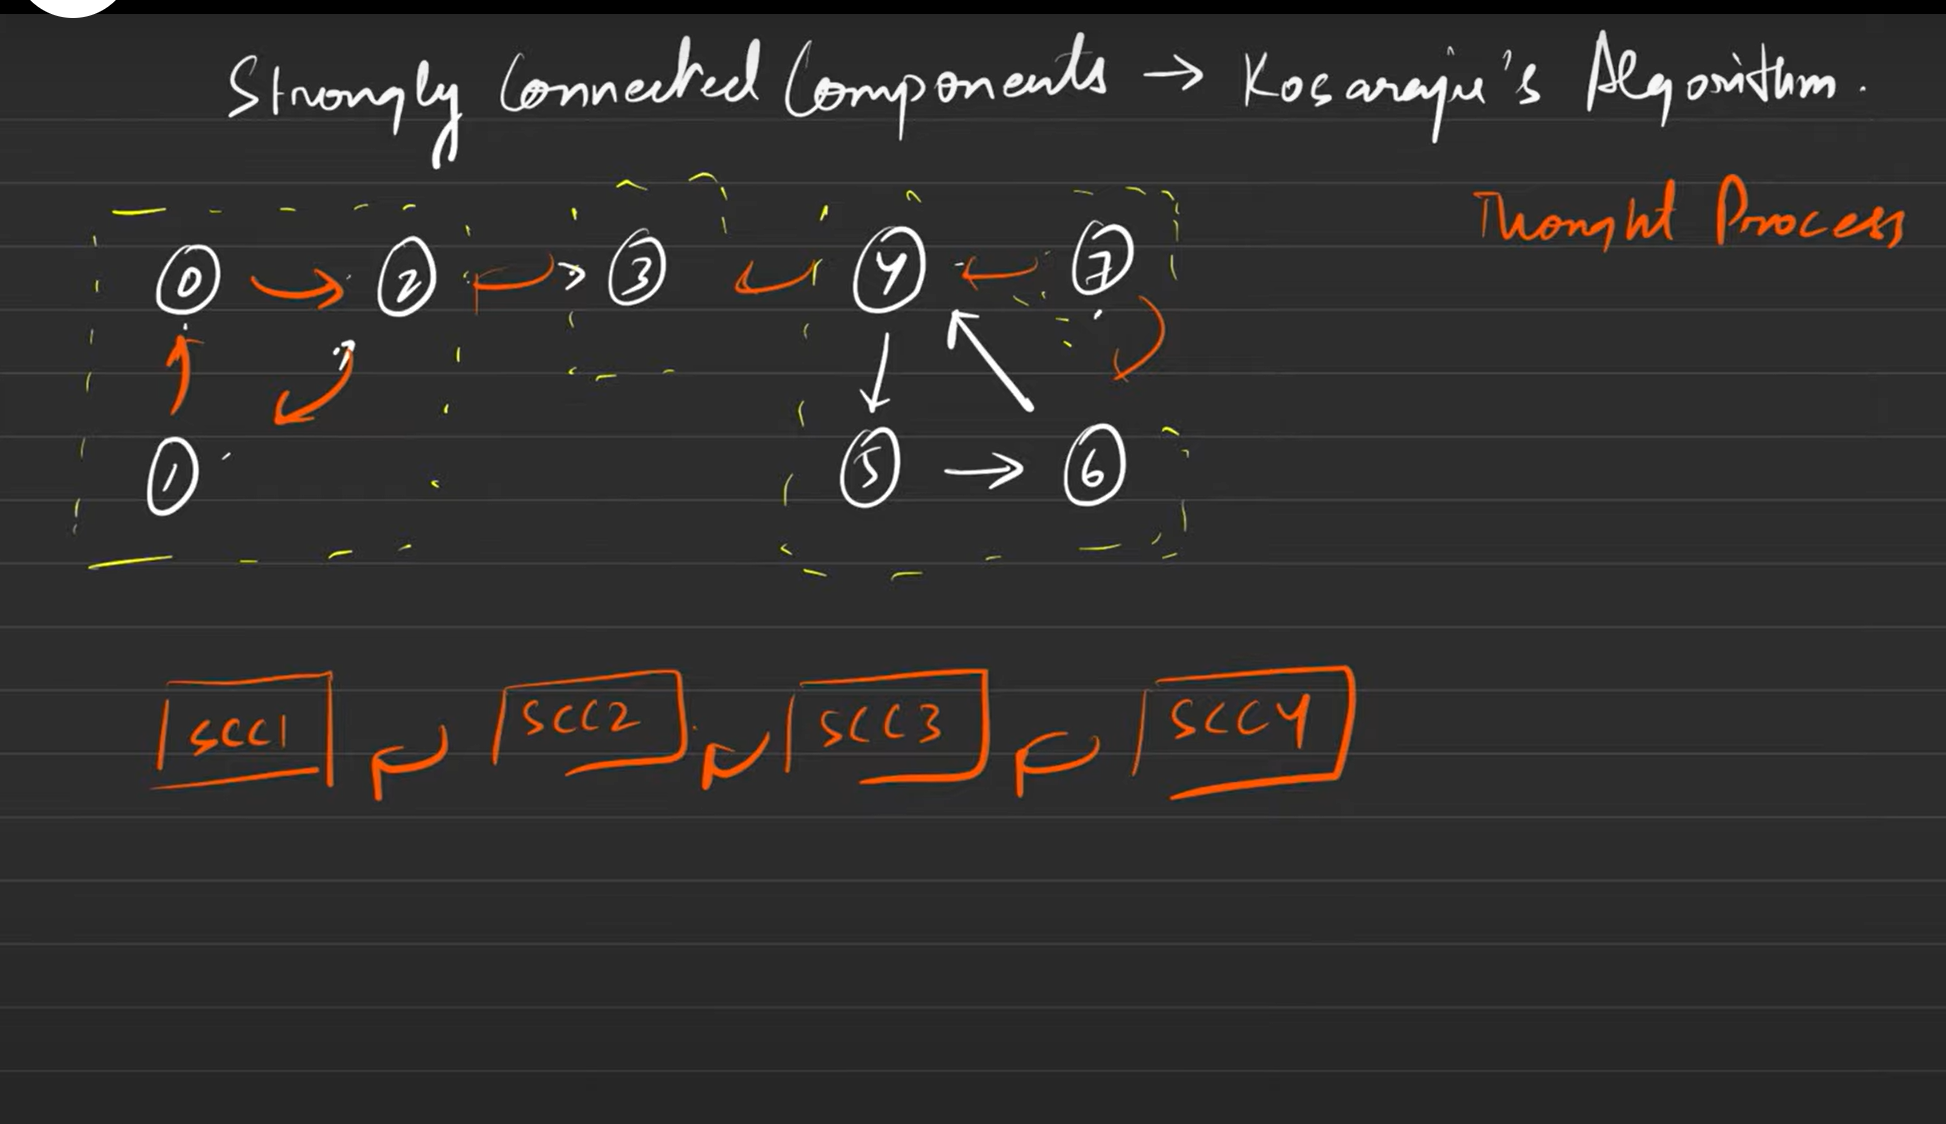 Strongly Connected Components → Kosaraju's Algorithm.
Thought Process
0 2 3 4 7
1 5 6
SCC1 SCC2 SCC3 SCC4